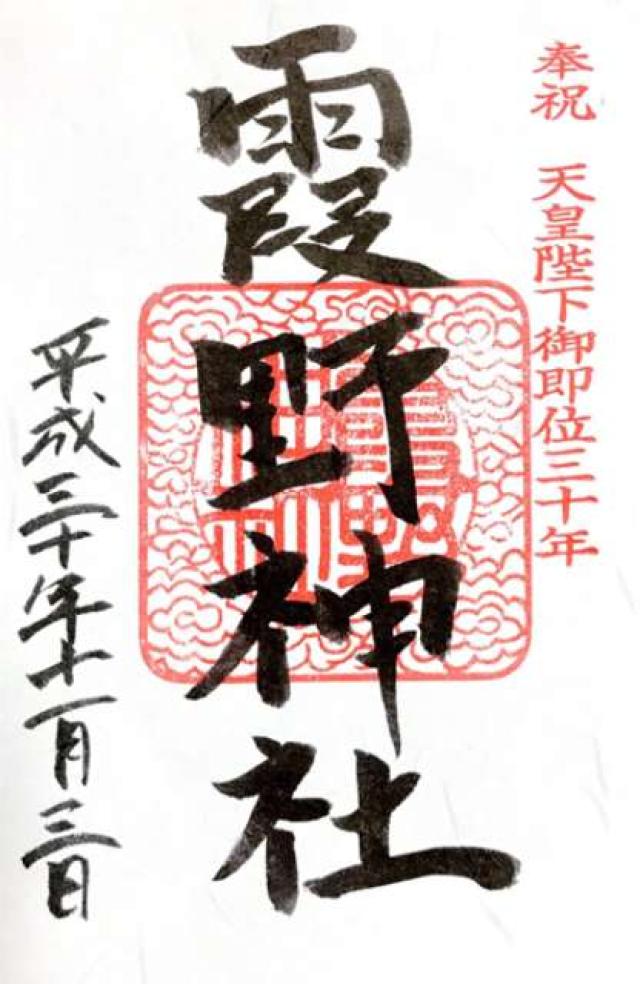 奉祝 天皇陛下御即位三十年
霞野神社
平成三十年十一月三日